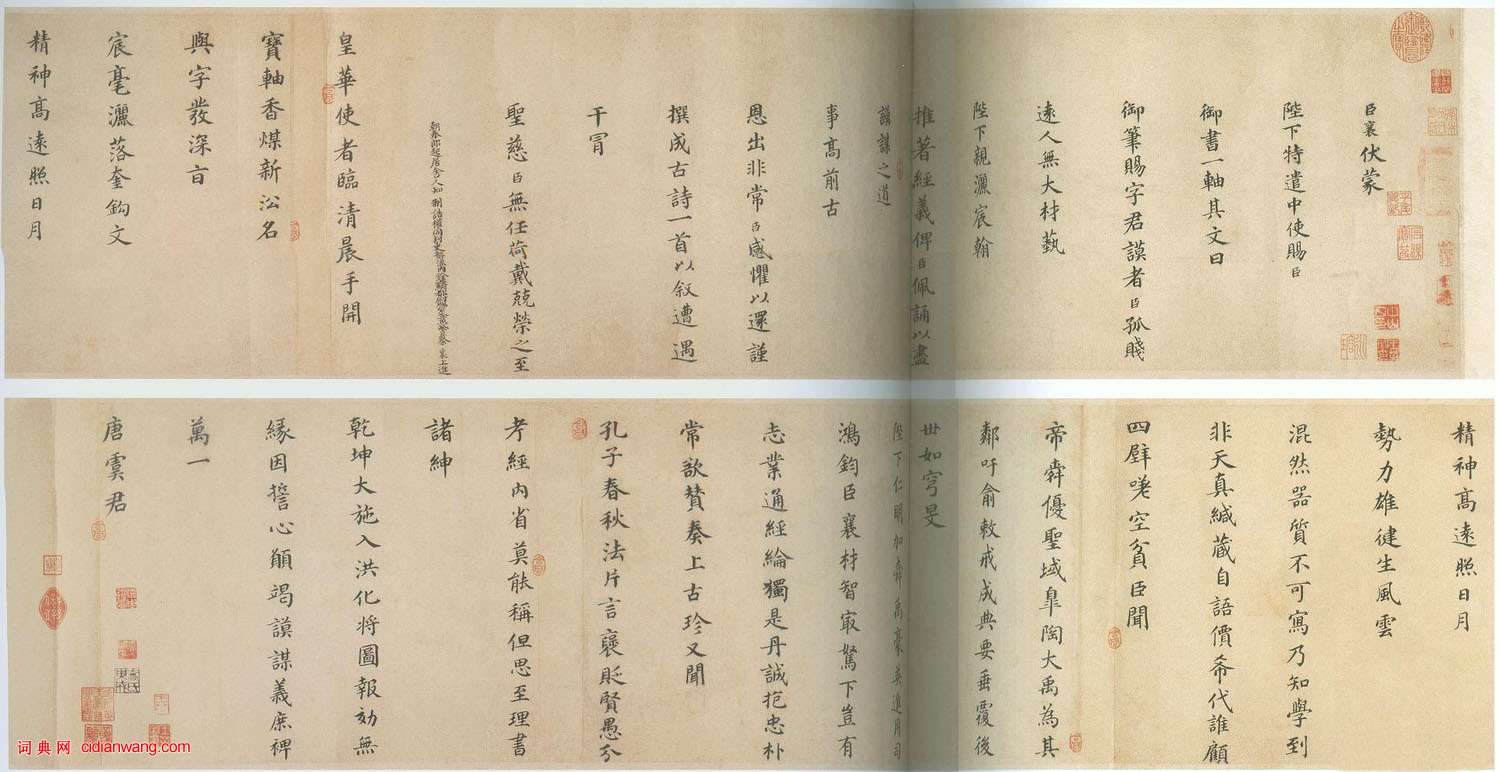 臣襄伏蒙
陛下特遣中使賜臣
御書一軸其文曰
御筆賜字君謨者臣孤賤
遠人無大材藝
陛下親灑宸翰
推著經義俾臣佩誦以盡
謨謀之道
事高前古
恩出非常臣感懼以還謹
撰成古詩一首以叙遭遇
干冒
聖慈臣無任荷戴兢榮之至
朝奉郎起居舍人知制誥權
皇華使者臨清晨手開
寶軸香煤新沿名
與字發深旨
宸毫灑落奎鈎文
精神高遠照日月
精神高遠照日月
勢力雄健生風雲
混然器質不可寫乃知學到
非天真緘藏自語價希代誰顧
四壁嗟空貧臣聞
帝舜優聖域臯陶大禹為其
鄰吁俞敕戒成典要垂覆後
世如穹旻
陛下仁明加舜禹豪英進用司
鴻鈞臣襄材智最駑下豈有
志業通經綸獨是丹誠抱忠朴
常欲贊奏上古珍又聞
孔子春秋法片言褒貶賢愚分
考經內省莫能稱但思至理書
諸紳
乾坤大施入洪化将圖報効無
緣因誓心願竭謨謀義庶裨
萬一
唐虞君
词典网 cidianwang.com